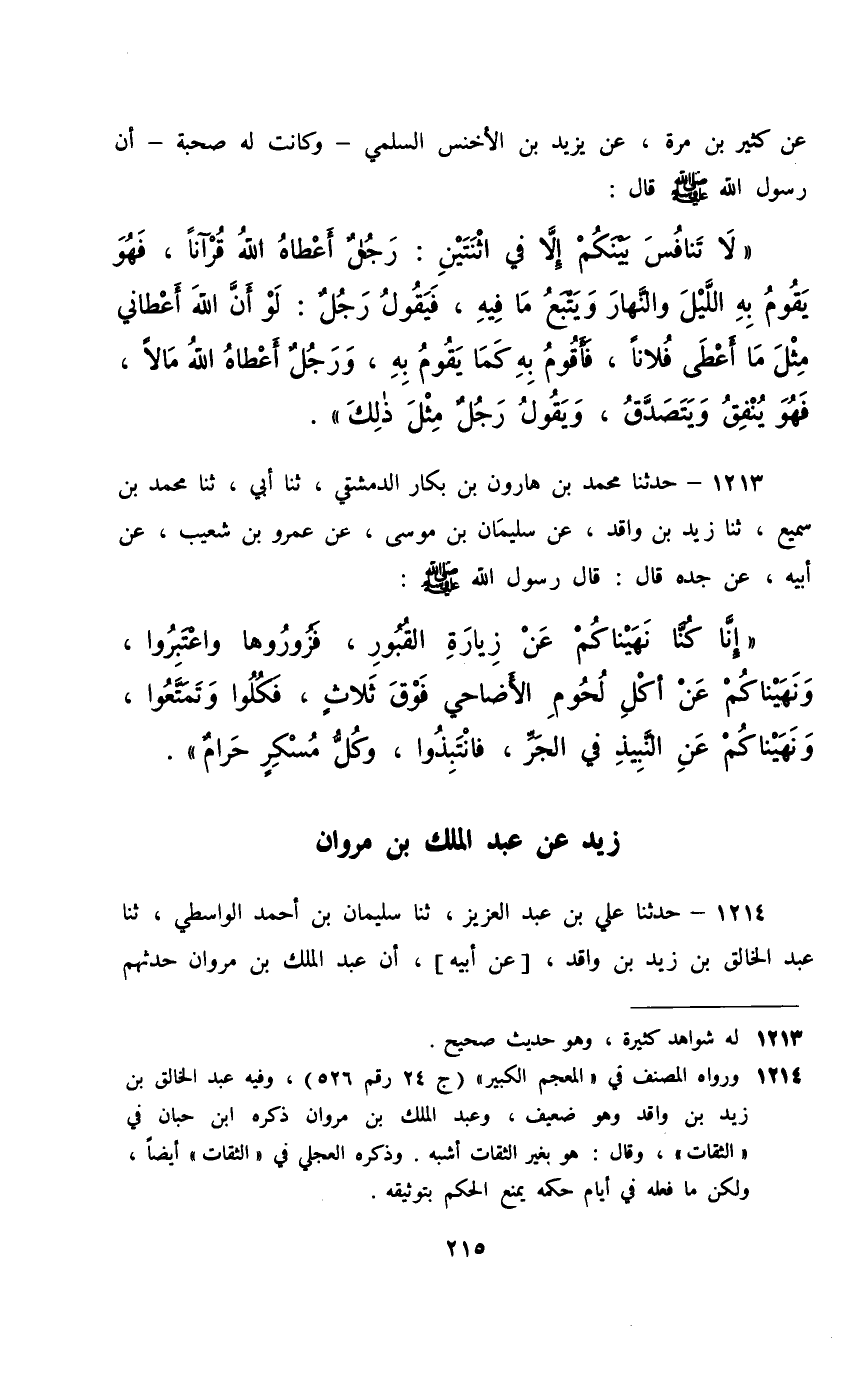 عن كثير بن مرة ، عن يزيد بن الأخنس السلمي – وكانت له صحبة – أن
رسول الله ﷺ قال :
« لَا تَنافُسَ بَيْنَكُمْ إِلَّا في اثْنَتَيْنِ : رَجُلٌ أَعْطاهُ اللهُ قُرْآناً ، فَهُوَ
يَقُومُ بِهِ اللَّيْلَ والنَّهارَ وَيَتَّبَعُ مَا فِيهِ ، فَيَقُولُ رَجُلٌ : لَوْ أَنَّ اللهَ أَعْطاني
مِثْلَ مَا أَعْطَى فُلاناً ، فَأَقُومُ بِهِ كَمَا يَقُومُ بِهِ ، وَرَجُلٌ أَعْطاهُ اللهُ مَالاً ،
فَهُوَ يُنْفِقُ وَيَتَصَدَّقُ ، وَيَقُولُ رَجُلٌ مِثْلَ ذٰلِكَ » .
١٢١٣ – حدثنا محمد بن هارون بن بكار الدمشقي ، ثنا أبي ، ثنا محمد بن
سميع ، ثنا زيد بن واقد ، عن سليمَان بن موسى ، عن عمرو بن شعيب ، عن
أبيه ، عن جده قال : قال رسول الله ﷺ :
« إِنَّا كُنَّا نَهَيْناكُمْ عَنْ زِيارَةِ القُبُورِ ، فَزُورُوها واعْتَبِرُوا ،
وَنَهَيْناكُمْ عَنْ أكْلِ لُحُومِ الأَضاحي فَوْقَ ثَلاثٍ ، فَكُلُوا وَتَمَتَّعُوا ،
وَنَهَيْناكُمْ عَنِ النَّبِيذِ في الجَرِّ ، فانْتَبِذُوا ، وكُلُّ مُسْكِرٍ حَرامٌ » .
زيد عن عبد الملك بن مروان
١٢١٤ – حدثنا علي بن عبد العزيز ، ثنا سليمان بن أحمد الواسطي ، ثنا
عبد الخالق بن زيد بن واقد ، [ عن أبيه ] ، أن عبد الملك بن مروان حدثهم
١٢١٣ له شواهد كثيرة ، وهو حديث صحيح .
١٢١٤ ورواه المصنف في « المعجم الكبير » ( ج ٢٤ رقم ٥٢٦ ) ، وفيه عبد الخالق بن
زيد بن واقد وهو ضعيف ، وعبد الملك بن مروان ذكره ابن حبان في
« الثقات » ، وقال : هو بغير الثقات أشبه . وذكره العجلي في « الثقات » أيضاً ،
ولكن ما فعله في أيام حكمه يمنع الحكم بتوثيقه .
٢١٥